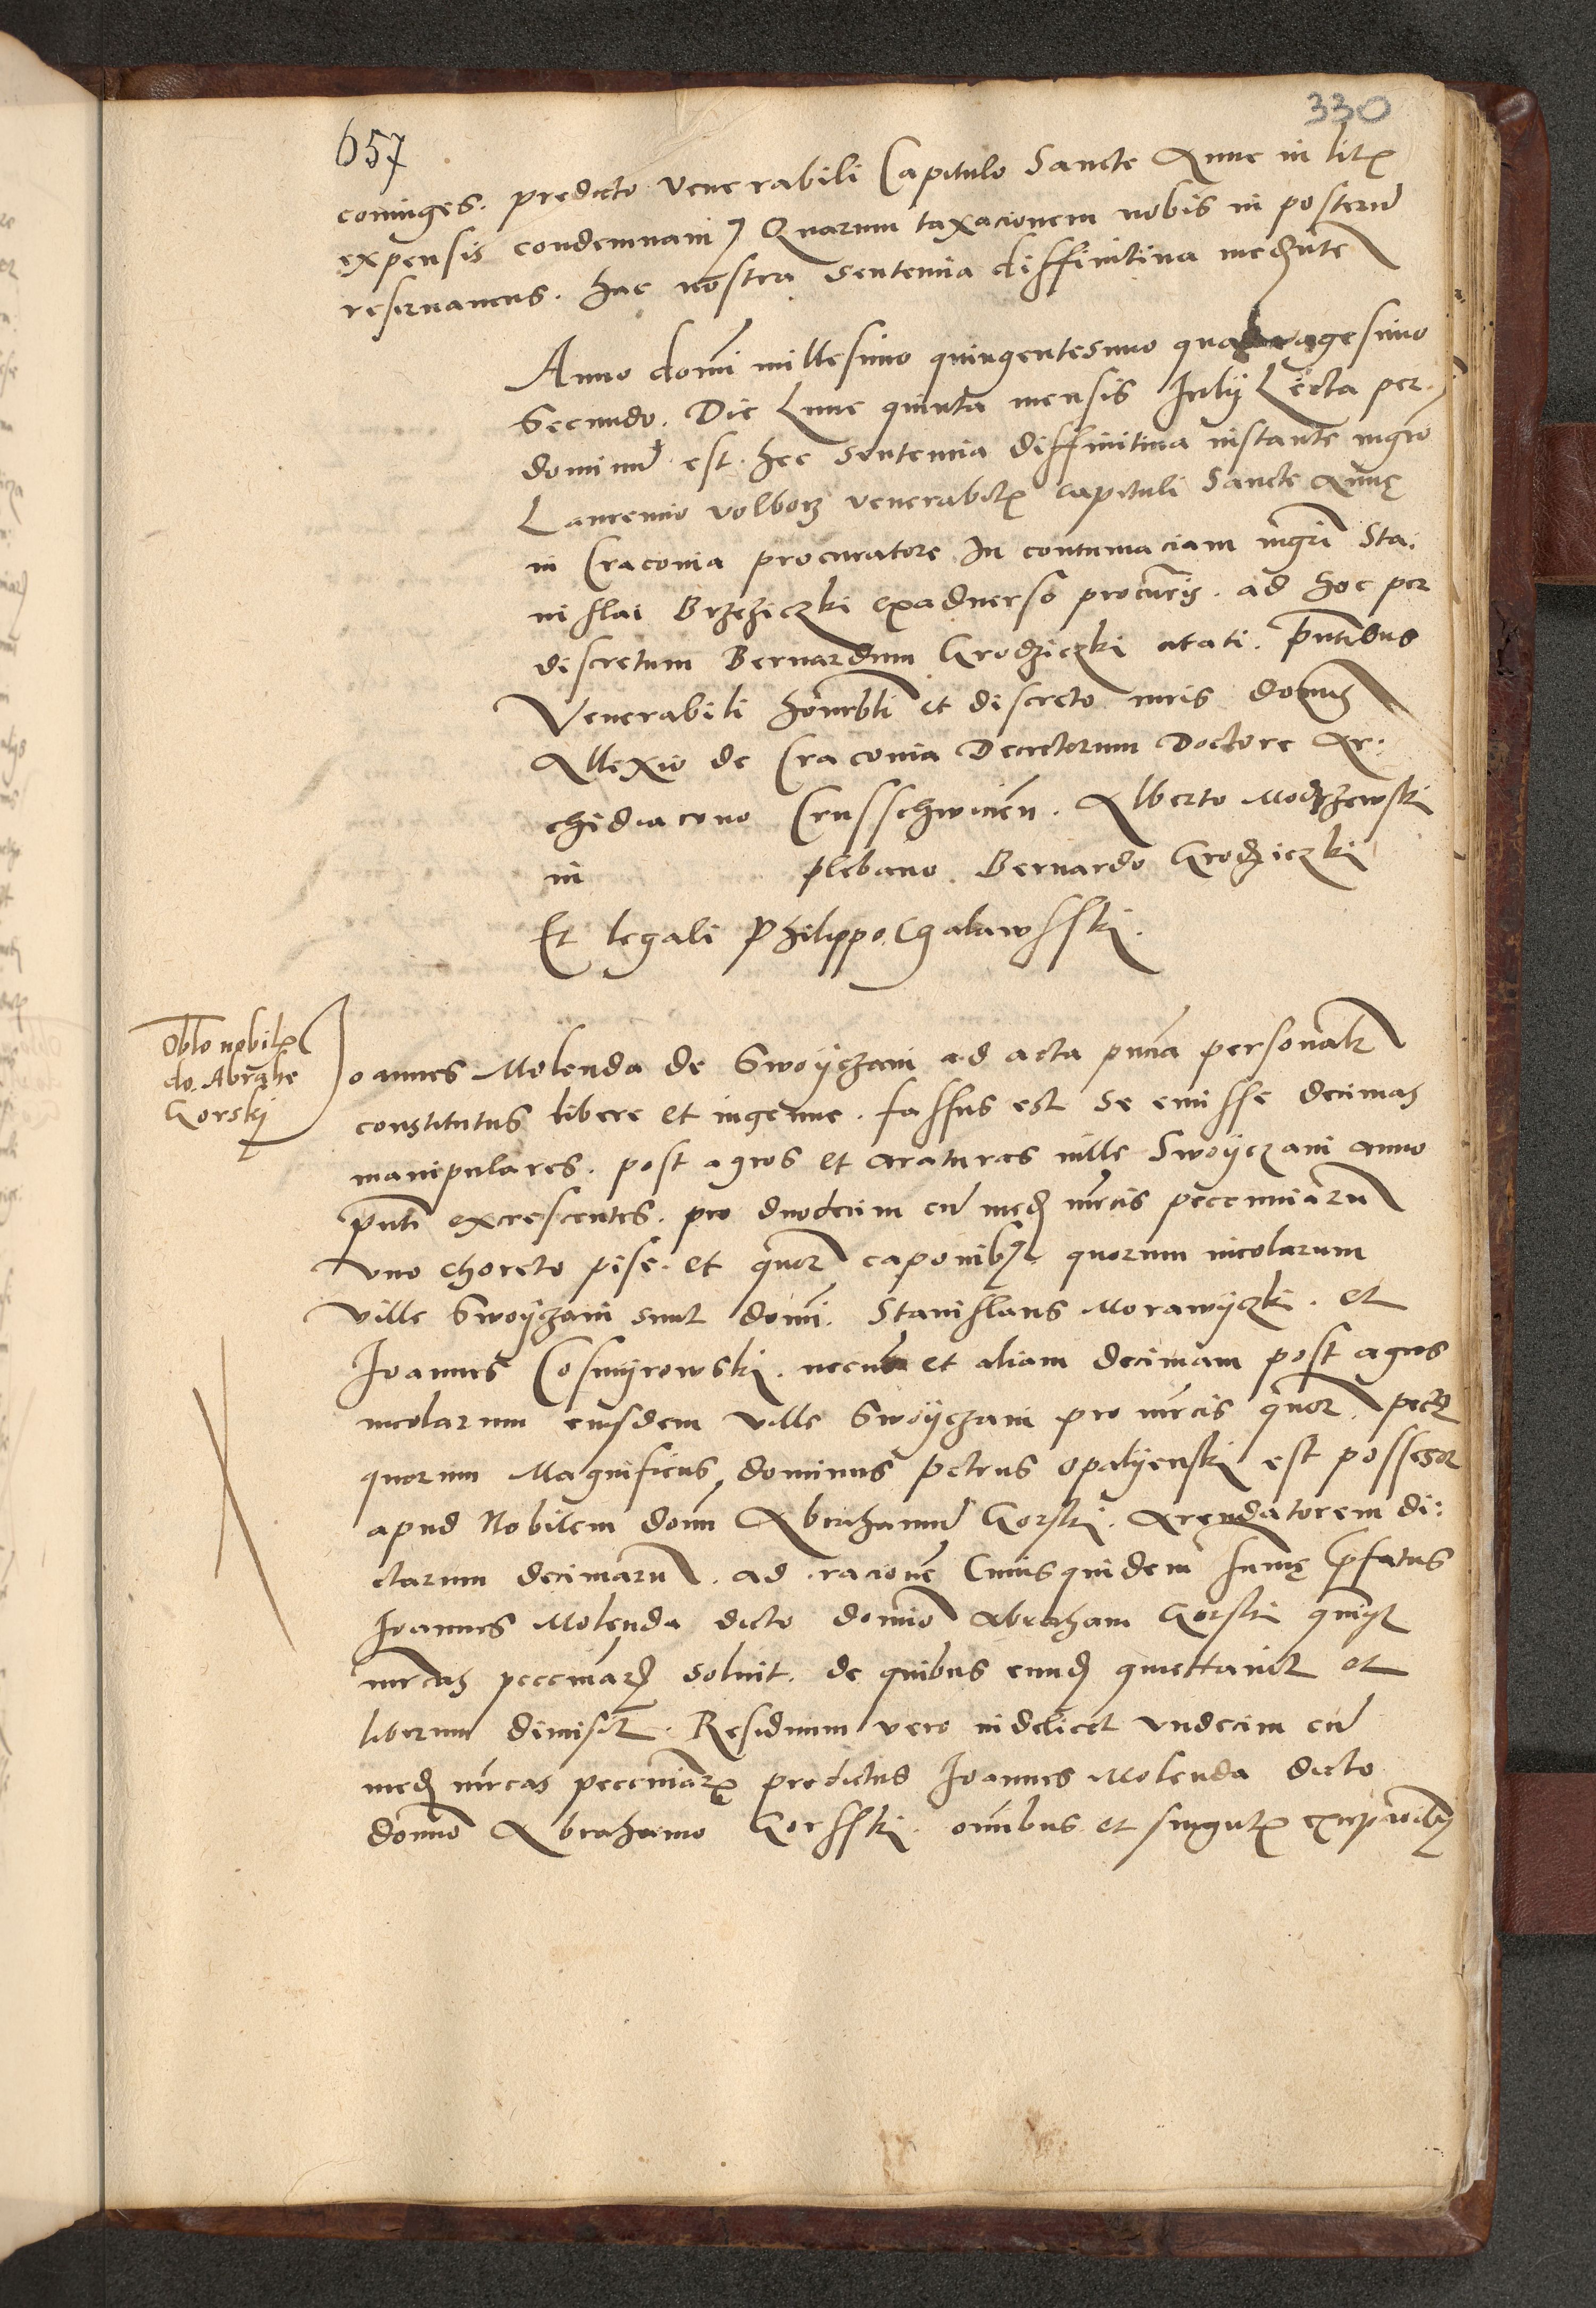 330
657
coniuges. predicto venerabili Capitulo Sancte Anne in litis
expensis condemnam(us) Quarum taxacionem nobis in posterum
reservamus. hac nostra sentencia diffinitiva mediante
Anno domini millesimo quingentesimo quadragesimo
Secundo. Die Lune quinta mensis July Lecta per
dominum est. hec sentencia diffinitiva instante mgro
Laurencio volborz venerabilis Capituli Sancte Annę
in Cracovia procuratore In contumaciam mgri Sta-
nislai Brzeziczki exadverso procuris. ad hoc per
discretum Bernardum Grodziczki citati. pntibus
Venerabili honorbli et discreto viris dominis
Allexio de Cracovia Decretorum Doctore Ar-
chidiacono Crusschwicien. Alberto Modrzewski
in plebano. Bernardo Grodziczki
Et legali Philippo Galawsski.
Oblo nobilis
do. Abrahe
Gorskj
Joannes Molenda de Swoyczani ad acta pncia personalr
constitutus libere et ingenue. fassus est se emisse decimas
manipulares. post agros et araturas ville Swoyczani anno
pnti excrescentes. pro duodecim cum med mrcis pecuniarum
vno choreto pise. et quor caponibus quorum incolarum
ville Swoyczani sunt domi. Stanislaus Morawyczki. et
Joannes Cosmyrowski. necnon et aliam decimam post agros
incolarum eiusdem ville Swoyczani pro mrcis quor. pecu
quorum Magnificus dominus Petrus Opalyenski est possessor
apud Nobilem domi Abrahamum Gorski. Arendatorem di-
ctarum decimarum. ad racionem Cuiusquidem sumę pfatus
Joannes Molenda dicto domino Abraham Gorski quinque
mrcas pecuniard solvit. de quibus eund quiettavit et
liberum dimisit. Residuum vero videlicet vndecim cum
med mrcas pecuniarum predictus Joannes Molenda dicto
domino Abrahamo Gorsski. omnibus et singulis excepcionibus